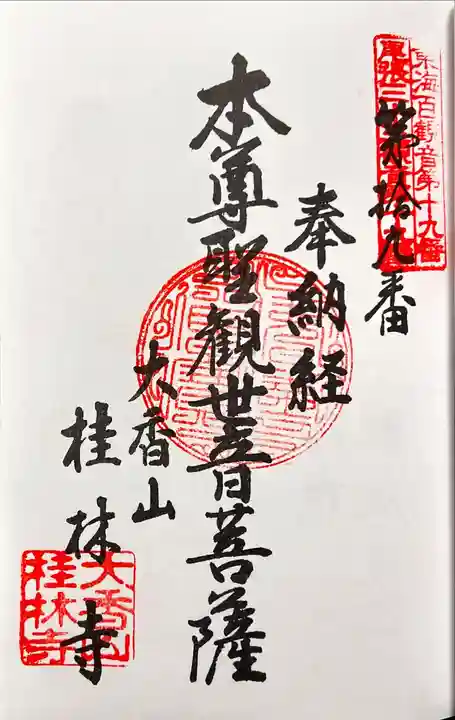 東海百観音第十九番
第拾九番
奉納経
本尊聖観世音菩薩
大香山
桂林寺
大香山
桂林寺